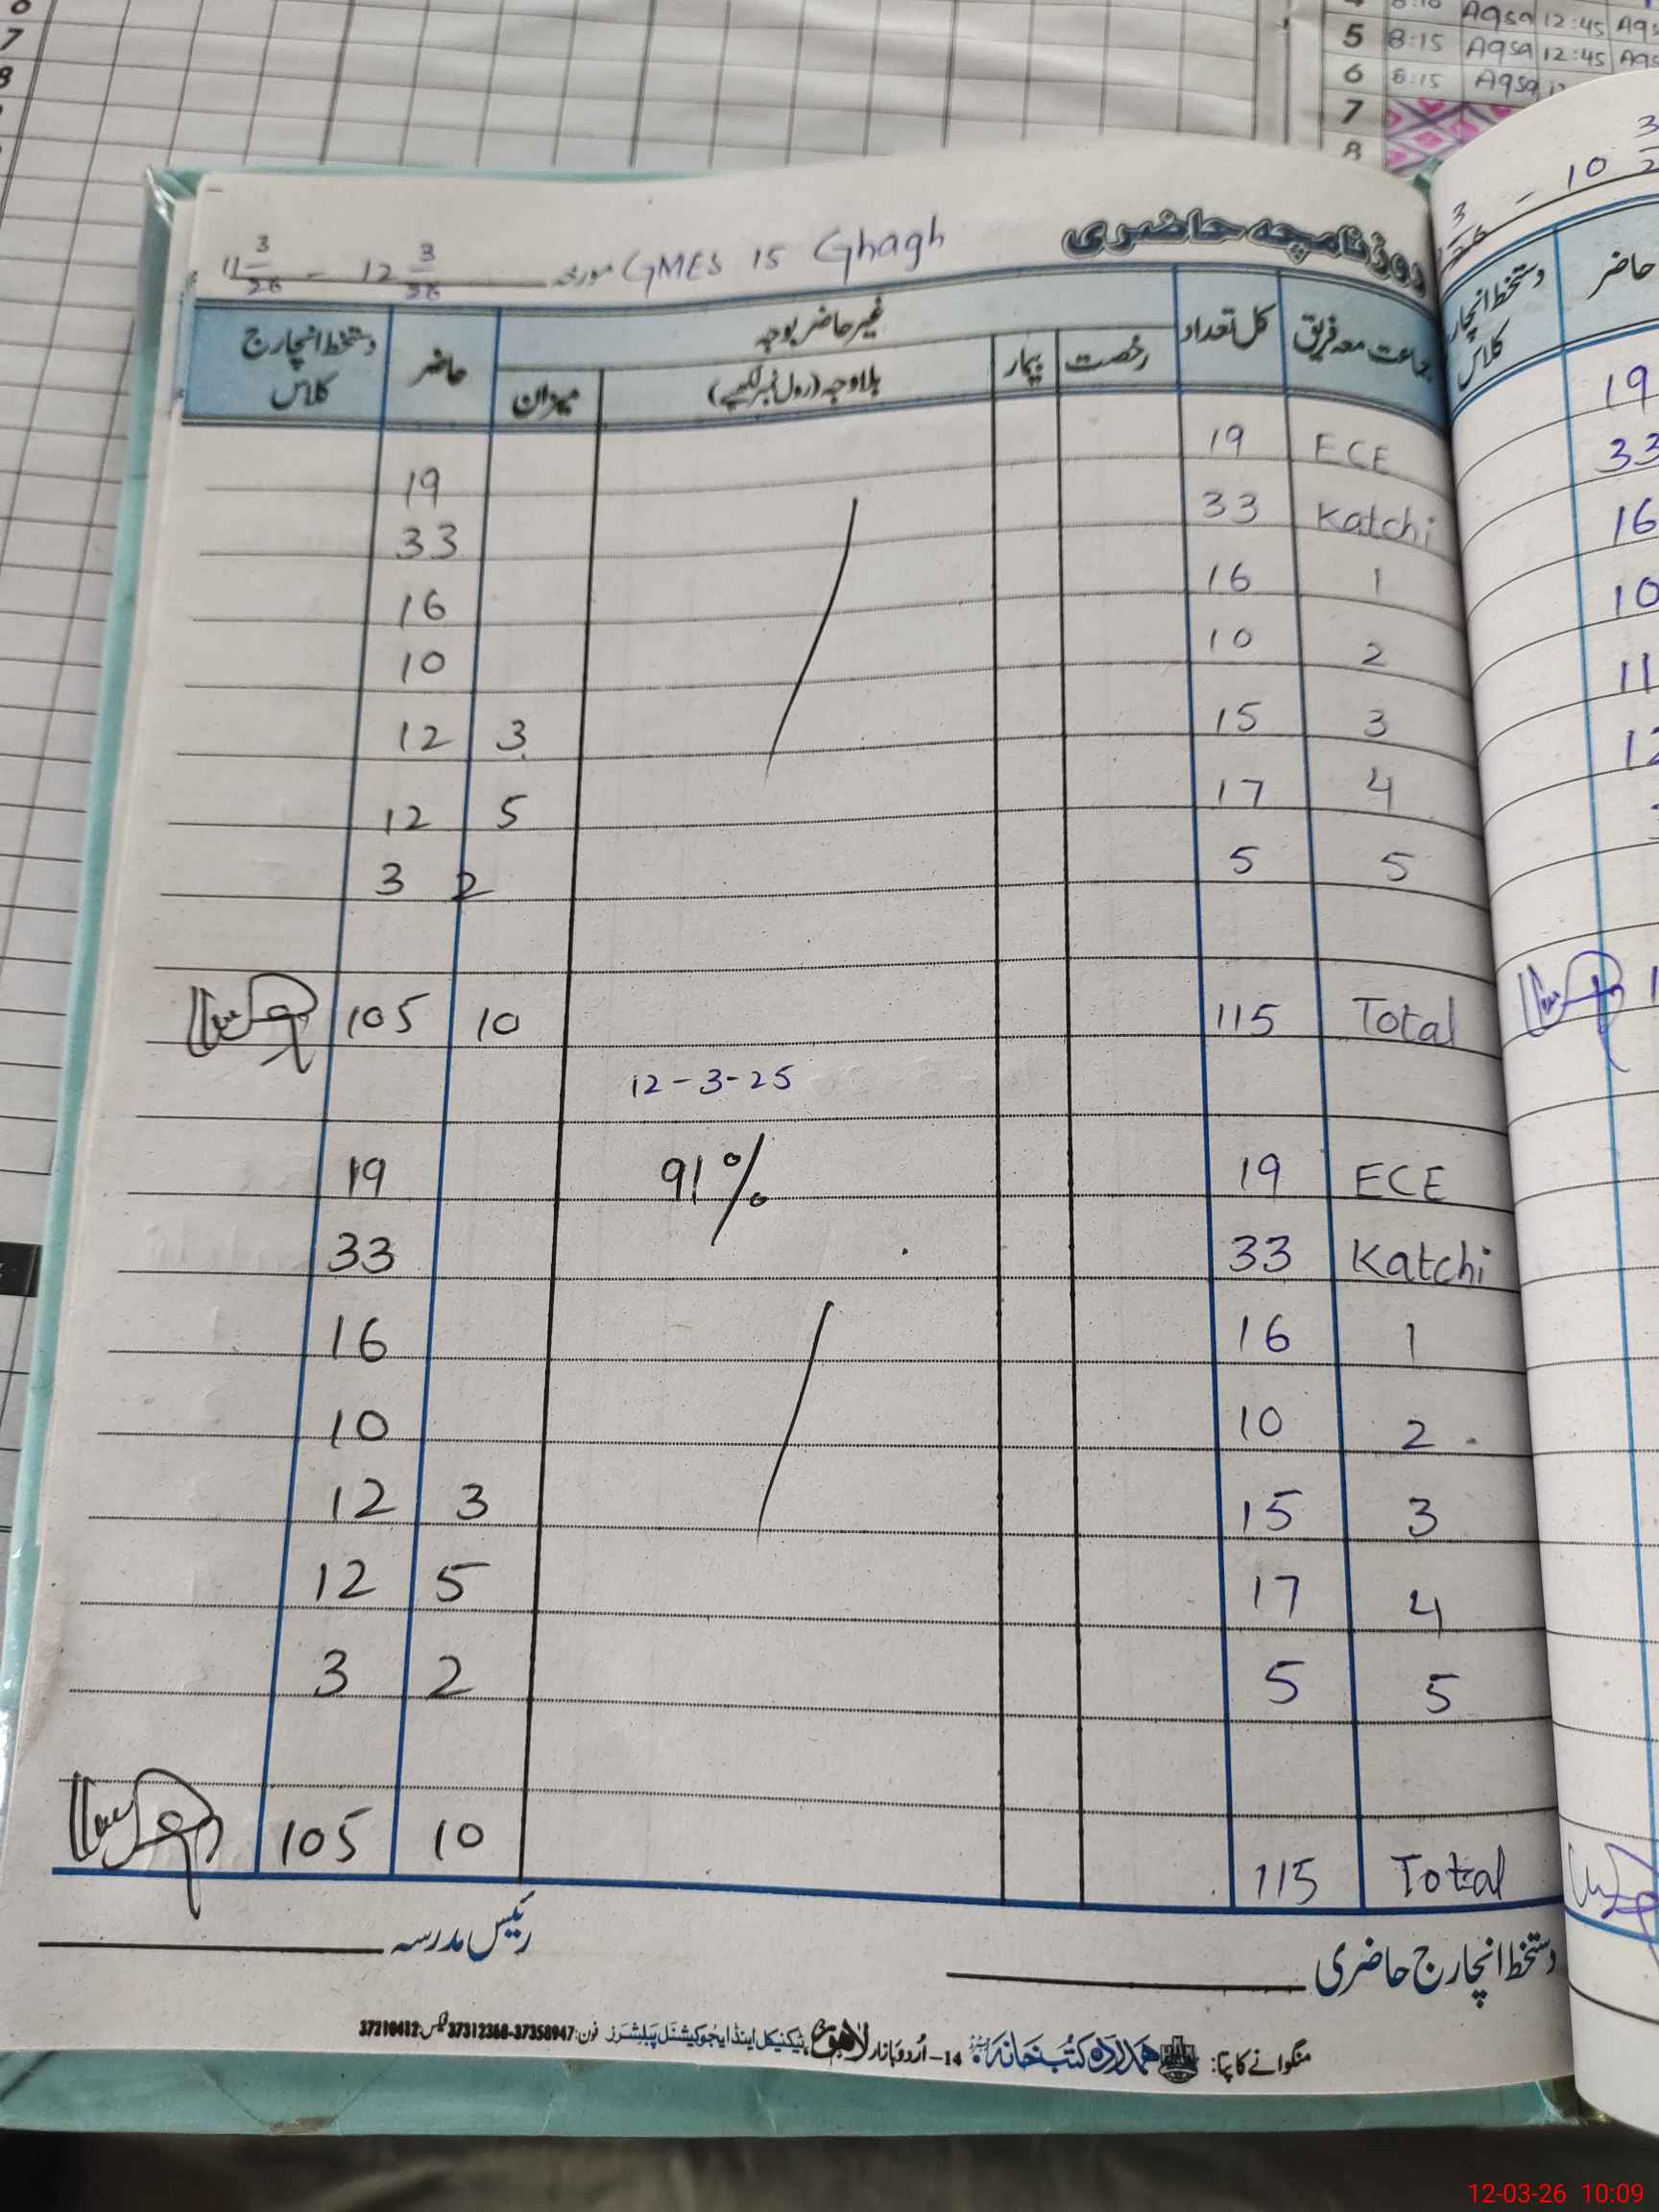 5 8:15 Aqsa 12:45
6 8:15 Aqsa
7
8
روزنامچہ حاضری GMES 15 Ghagh مورخہ 11 3/26 - 12 3/26
جماعت معہ فریق کل تعداد غیر حاضر بوجہ حاضر دستخط انچارج کلاس
رخصت بیمار بلا وجہ (رول نمبر لکھیے) میزان
ECE 19 19
Katchi 33 33
1 16 16
2 10 10
3 15 3 12
4 17 5 12
5 5 2 3
Total 115 10 105
12-3-25
ECE 19 91% 19
Katchi 33 33
1 16 16
2 10 10
3 15 3 12
4 17 5 12
5 5 2 3
Total 115 10 105
دستخط انچارج حاضری
رئیس مدرسہ
منگوانے کا پتا: ہمدرد کتب خانہ 14-اُردو بازار لاہور ٹیکنیکل اینڈ ایجوکیشنل پبلشرز فون: 37358947-37312368 فیکس: 37210412
حاضر دستخط انچارج کلاس
19
33
16
10
11
12-03-26 10:09